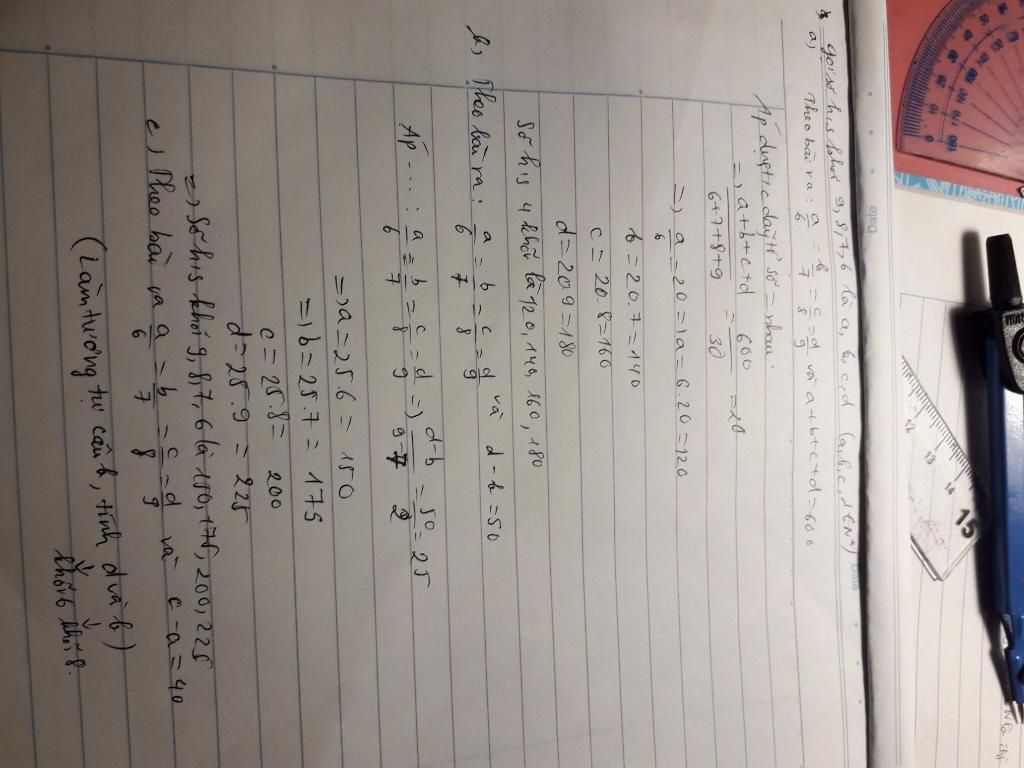 * gọi số h/s khối 9, 8, 7, 6 là a, b, c, d (a, b, c, d ∈ N*)
a, Theo bài ra: a/6 = b/7 = c/8 = d/9 và a+b+c+d=600
Áp dụng t/c dãy tỉ số = nhau:
=> a+b+c+d / 6+7+8+9 = 600/30 = 20
=> a/6 = 20 => a = 6.20 = 120
b = 20.7 = 140
c = 20.8 = 160
d = 20 9 = 180
Số h/s 4 khối là 120, 140, 160, 180
b, Theo bài ra: a/6 = b/7 = c/8 = d/9 và d - b = 50
Áp ....: a/6 = b/7 = c/8 = d/9 => d-b / 9-7 = 50/2 = 25
=> a = 25.6 = 150
=> b = 25.7 = 175
c = 25.8 = 200
d = 25.9 = 225
=> Số h/s khối 9, 8, 7, 6 là 150, 175, 200, 225
c, Theo bài ra a/6 = b/7 = c/8 = d/9 và c - a = 40
(Làm tương tự câu b, tính d và b)
khối 6 khối 8.
Date
13
14
15